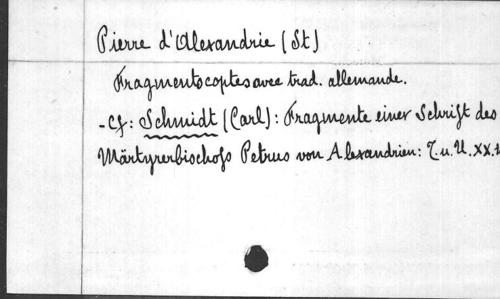 Pierre d'Alexandrie (St)
Fragments coptes avec trad. allemande.
- Cf: Schmidt (Carl): Fragmente einer Schrift des
Märtyrerbischofs Petrus von Alexandrien: T.u.U. XX.